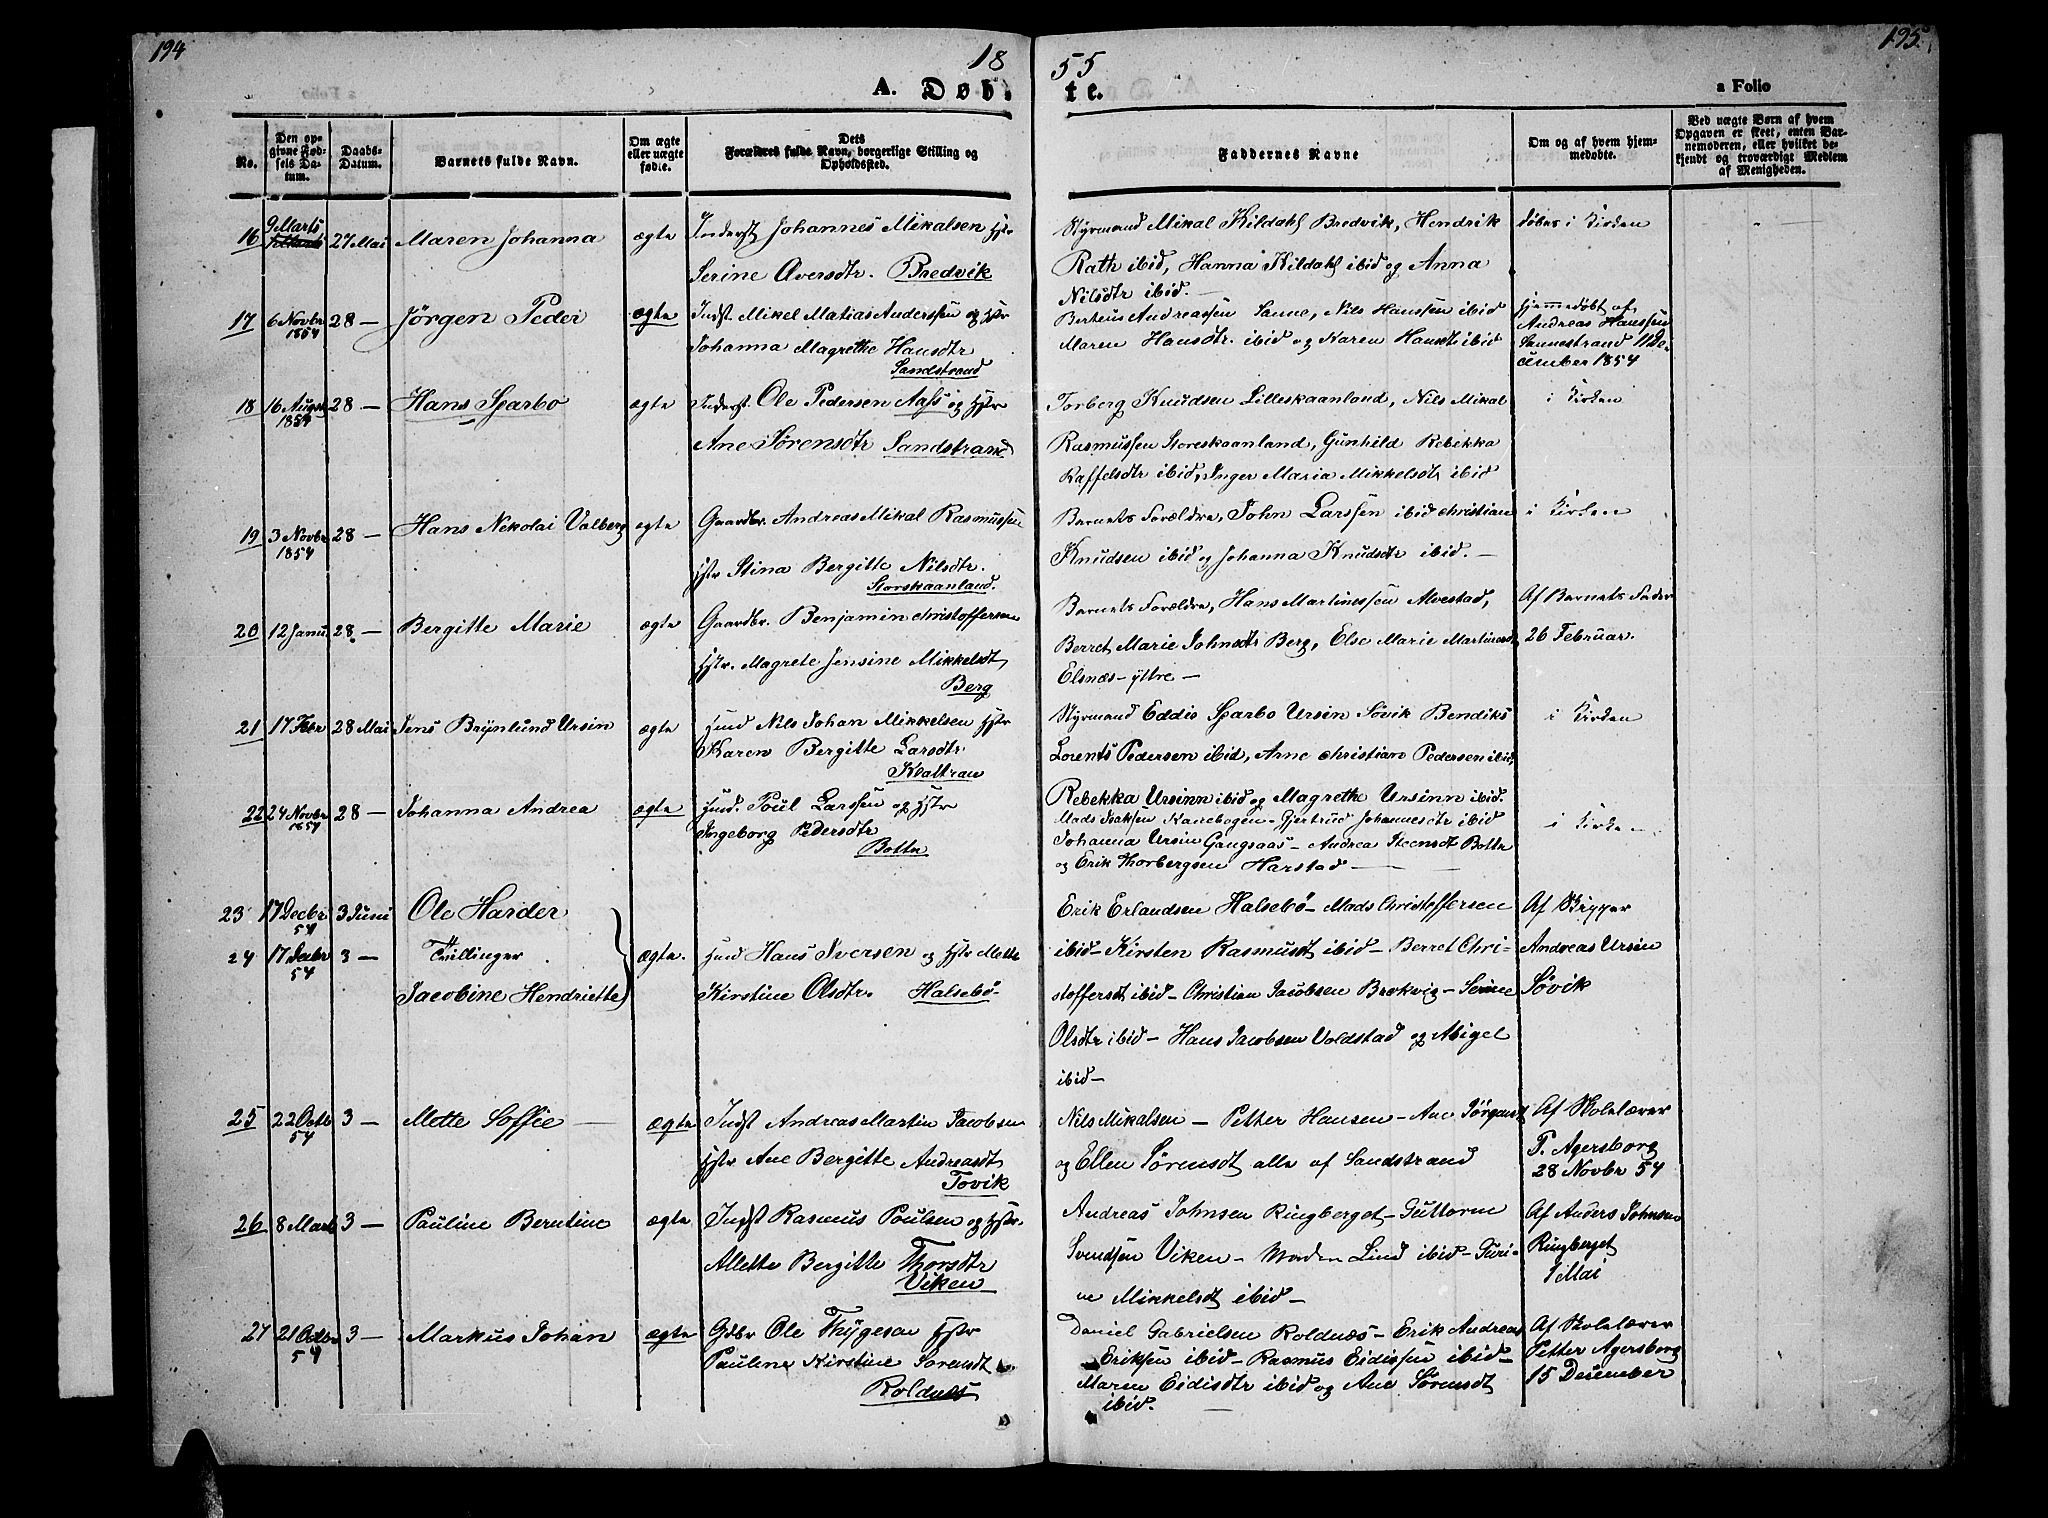 194
18
55
195
A. Døb.
te.
a Folio
No.
Den opgivne Fødsels Datum.
Daabs-Datum.
Barnets fulde Navn.
Om ægte eller uægte fødte.
Dets Forældres fulde Navn, borgerlige Stilling og Opholdssted.
Faddernes Navne
Om og af hvem hjemmedøbte.
Ved uægte Børn af hvem Opgaven er skeet, enten Barnemoderen, eller hvilket bekjendt og troværdigt Medlem af Menigheden.
16 9 Marts 27 Mai Maren Johanna ægte Inderst Johannes Mikalsen Hstr
Serine Aversdtr. Bredvik
Styrmand Mikal Kildahl Bredvik, Hendrik
Rath ibid, Hanna Kildahl ibid og Anna
Nilsdtr ibid.
døbt i Kirken
17 6 Novbr 1854 28 — Jörgen Peder ægte Indst. Mikel Matias Anderssen og Hstr
Johanna Magrethe Hansdtr
Sandstrand
Berteus Andreassen Sanne, Nils Hanssen ibid
Maren Hansdtr. ibid og Karen Hansdt ibid
Hjemmedøbt af
Andreas Hanssen
Sannestrand 11 De-
cember 1854
18 16 August 1854 28 — Hans Sparbo ægte Inderst. Ole Pedersen Aass og Hstr
Ane Sörensdtr Sandstrand
Torberg Knudsen Lilleskaanland, Nils Mikal
Rasmussen Storeskaanland, Gunhild Rebekka
Raffelsdtr ibid, Inger Maria Mikkelsdt ibid
i Kirken
19 3 Novbr 1854 28 — Hans Nekolai Valberg ægte Gaardbr. Andreas Mikal Rasmussen
Hstr Stina Bergitte Nilsdtr.
Storskaanland.
Barnets Forældre, John Larssen ibid christian
Knudsen ibid og Johanna Knudsdtr ibid. —
i Kirken
20 12 Janu. 28. — Bergitte Marie ægte Gaardbr. Benjamin christoffersen
Hstr. Magrete Jensine Mikkelsdt
Berg
Barnets Forældre, Hans Martinessen Alvestad,
Berret Marie Johnsdtr Berg, Else Marie Martinesdt
Elsnæs-yttre —
Af Barnets Fader
26 Februar.
21 17 Febr 28 Mai Jens Brynlund Ursin ægte Hmd Nils Johan Mikkelsen Hstr
Karen Bergitte Larsdtr
Kealtran
Styrmand Eddis Sparbo Ursin Søvik Bendiks
Lorents Pedersen ibid, Arne christian Pedersen ibid,
Rebekka Ursinn ibid og Magrethe Ursinn ibid.
i Kirken
22 24 Novbr 1854 28 — Johanna Andrea ægte Hmd. Poul Larssen og Hstr
Ingeborg Pedersdtr
Bottn
Mads Isaksen Kanebogen - Gjertrud Johannesdtr ibid
Johanna Ursin Gangsaas — Andrea Steensdt Bottn
og Erik Thorbergsen Harstad —
i Kirken
23 17 Decbr 54 3 Juni Ole Harder
24 17 Decbr 54 3 — Tvillinger
Jacobine Hendriette
ægte. Hmd Hans Iversen og Hstr Mette
Kirstine Olsdtr. Halsebö
Erik Erlandsen Halsebö — Mads Christoffersen
ibid — Kirsten Rasmusdt ibid — Berret Chri-
stoffersdt ibid — Christian Jacobsen Brokvig — Serine
Olsdtr ibid — Hans Jacobsen Voldstad og Abigel
ibid —
Af Skipper
Andreas Ursin
Søvik
25 22 Octb 54 3 — Mette Soffie ægte Indst Andreas Martin Jacobsen
Hstr Ane Bergitte Andreasdt
Tovik
Nils Mikalsen — Petter Hansen — Ane Jörgensdt
og Ellen Sörensdt alle af Sandstrand
Af Skolelærer
P. Agersborg
28 Novbr 54
26 8 Marts 3 — Pauline Berntine ægte Indst Rasmus Poulsen og Hstr.
Allette Bergitte Thorsdtr
Viken
Andreas Johnsen Ringberget — Guttorm
Svendsen Viken — Morten Lind ibid — Turi-
ne Mikkelsdt ibid —
Af Anders Johnsen
Ringberget
1 Mai
27 21 Octbr 54 3 — Markus Johan ægte Gdbr Ole Thygesen Hstr
Pauline Kirstine Sorensdt
Roldnæs
Daniel Gabrielsen Roldnæs — Erik Andreas
Eriksen ibid — Rasmus Eidissen ibid —
Maren Eidisdtr ibid og Ane Sörensdt
ibid. —
Af Skolelærer
Petter Agersborg
15 Desember